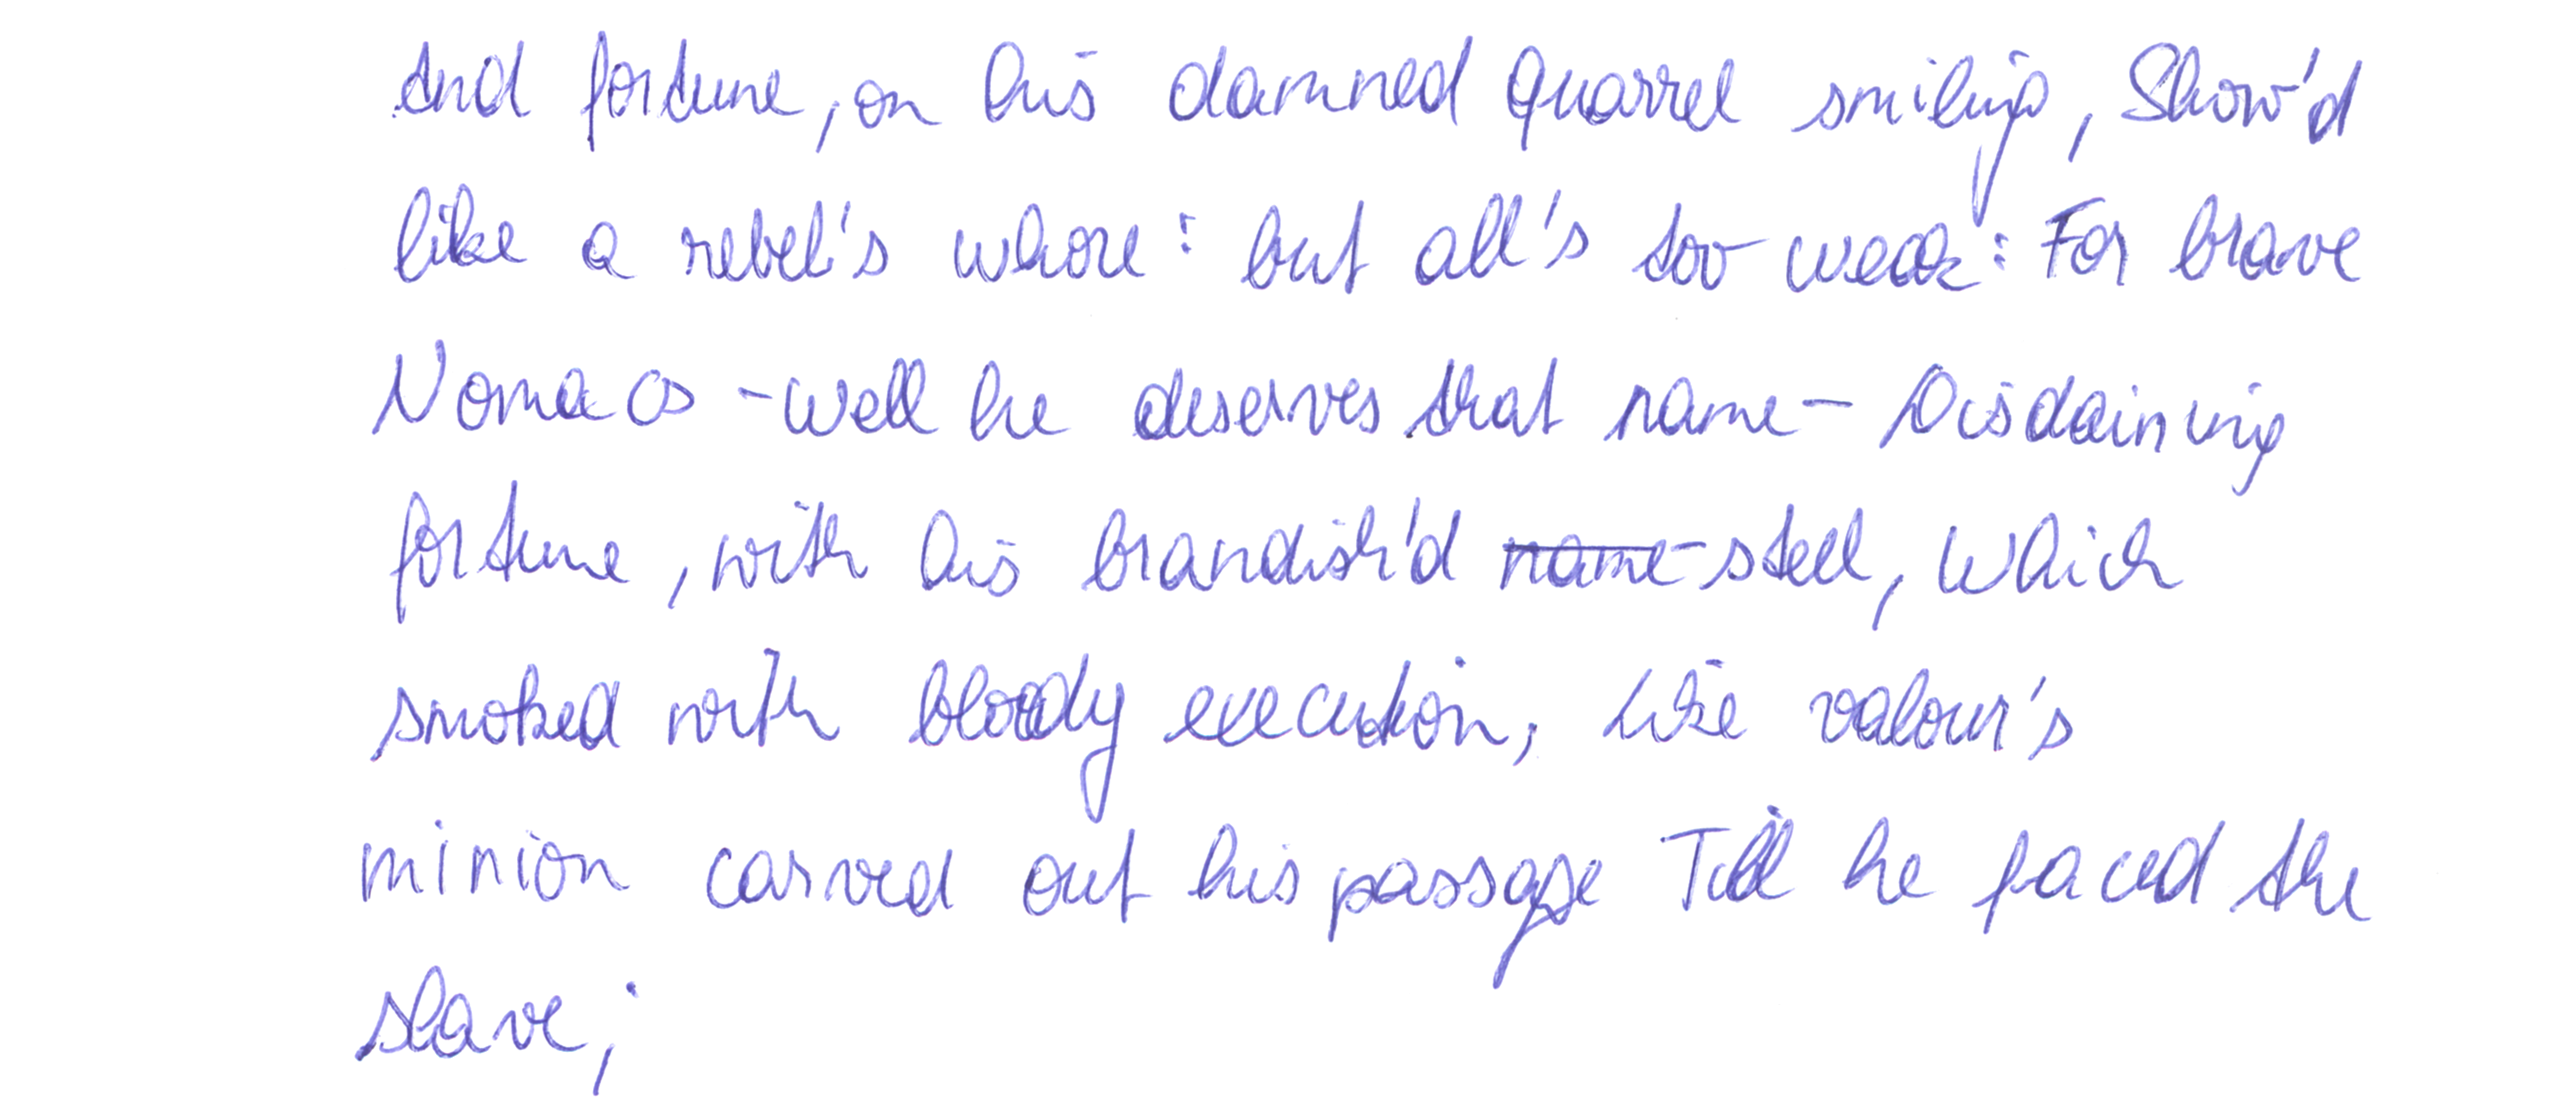 And fortune, on his damned quarrel smiling, Show'd
like a rebel's whore: but all's too weak: For brave
Nomacs - well he deserves that name - Disdaining
fortune, with his brandish'd name steel, Which
smoked with bloody execution, Like valour's
minion carved out his passage Till he faced the
slave;